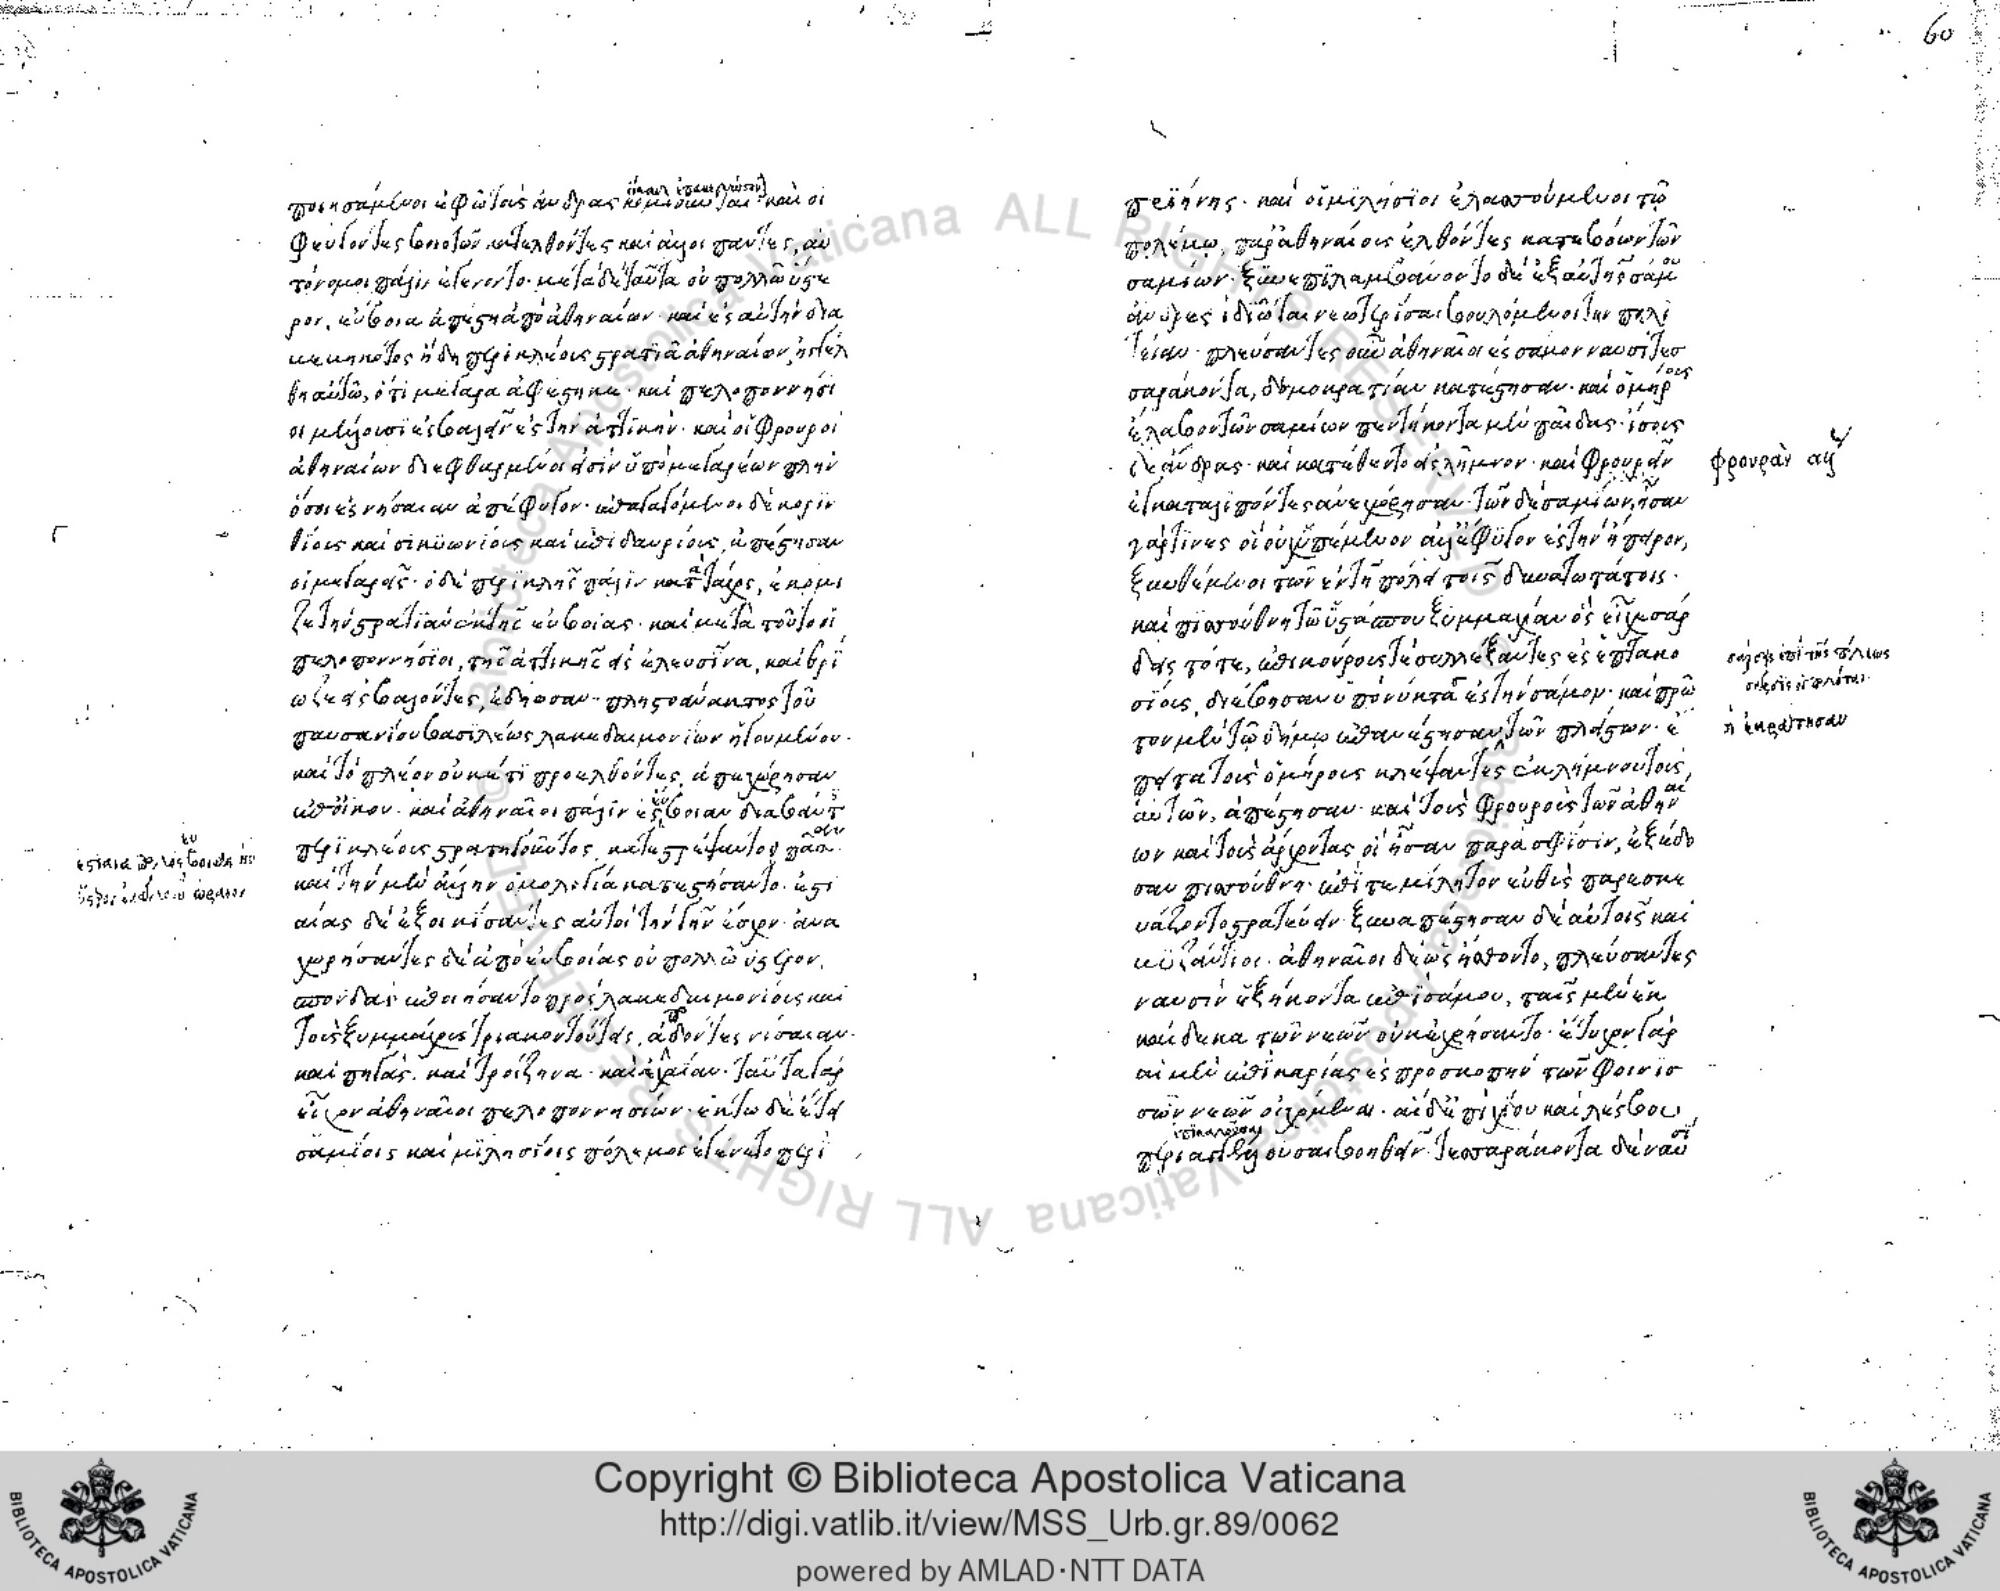 60
ποιησάμενοι ἐφ ὧ τοὺς ἄνδρας κομιοῦνται καὶ οἱ
φεύγοντες βοιωτῶν κατελθόντες καὶ ἄλλοι πάντες, αὐ
τόνομοι πάλιν ἐγένοντο· μετὰ δὲ ταῦτα οὐ πολλῶ ὕστε
ρον, εὔβοια ἀπέστη ἀπὸ ἀθηναίων· καὶ ἐς αὐτὴν δια
βεβηκότος ἤδη περικλέους στρατιᾶ ἀθηναίων, ἠγγέλ
θη αὐτῶ, ὅτι μέγαρα ἀφέστηκε· καὶ πελοποννήσι
οι μέλλουσιν ἐσβαλεῖν ἐς τὴν ἀττικήν· καὶ οἱ φρουροὶ
ἀθηναίων διεφθαρμένοι εἰσὶν ὑπὸ μεγαρέων πλὴν
ὅσοι ἐς νήσαιαν ἀπέφυγον· ἐπαγαγόμενοι δὲ κοριν
θίους καὶ σικυωνίους καὶ ἐπιδαυρίους, ἀπέστησαν
οἱ μεγαρεῖς· ὁ δὲ περικλῆς πάλιν κατὰ τάχος, ἐκόμι
ζε τὴν στρατιὰν ἐκ τῆς εὐβοίας· καὶ μετὰ τοῦτο οἱ
πελοποννήσιοι, τῆς ἀττικῆς ἐς ἐλευσῖνα, καὶ θρι
ῶζε ἐσβαλόντες, ἐδήωσαν· πλειστοάνακτος τοῦ
παυσανίου βασιλέως λακεδαιμονίων ἡγουμένου·
καὶ τὸ πλέον οὐκέτι προελθόντες, ἀπεχώρησαν
ἐπ οἴκου· καὶ ἀθηναῖοι πάλιν ἐς εὔβοιαν διαβάντες
περικλέους στρατηγοῦντος, κατεστρέψαντο πᾶσαν·
καὶ τὴν μὲν ἄλλην ὁμολογία κατεστήσαντο· ἑστι
αίας δὲ ἐξοικίσαντες αὐτοὶ τὴν γῆν ἔσχον· ἀνα
χωρήσαντες δὲ ἀπὸ εὐβοίας οὐ πολλῶ ὕστερον,
σπονδὰς ἐποιήσαντο πρὸς λακεδαιμονίους καὶ
τοὺς ξυμμάχους τριακοντούτεις, ἀποδόντες νίσαιαν·
καὶ πηγὰς· καὶ τροίζηνα· καὶ ἀχαΐαν· ταῦτα γὰρ
εἶχον ἀθηναῖοι πελοποννησίων· ἕκτω δὲ ἔτει
σαμίοις καὶ μιλησίοις πόλεμος ἐγένετο περὶ
πριήνης· καὶ οἱ μιλήσιοι ἐλασσούμενοι τῶ
πολέμω, παρ ἀθηναίους ἐλθόντες κατεβόων τῶν
σαμίων· ξυνεπελαμβάνοντο δὲ ἐξ αὐτῆς σάμου
ἄνδρες ἰδιῶται νεωτερίσαι βουλόμενοι τὴν πολι
τείαν· πλεύσαντες οὖν ἀθηναῖοι ἐς σάμον ναυσὶ τεσ
σαράκοντα, δημοκρατίαν κατέστησαν· καὶ ὁμήρους
ἔλαβον τῶν σαμίων πεντήκοντα μὲν παῖδας· ἴσους
δὲ ἄνδρας· καὶ κατέθεντο ἐς λῆμνον· καὶ φρουρὰν
ἐγκαταλιπόντες ἀνεχώρησαν· τῶν δὲ σαμίων, ἦσαν
γάρ τινες οἳ οὐχ ὑπέμενον ἀλλ ἔφυγον ἐς τὴν ἤπειρον,
ξυνθέμενοι τῶν ἐν τῆ πόλει τοῖς δυνατωτάτοις·
καὶ πισσούθνη τῶ ὑστάσπου ξυμμαχίαν ὃς εἶχε σάρ
δεις τότε, ἐπικούρους τε συλλέξαντες ἐς ἑπτακο
σίους, διέβησαν ὑπὸ νύκτα ἐς τὴν σάμον· καὶ πρῶ
τον μὲν τῶ δήμω ἐπανέστησαν, τῶν πλείστων· ἔ
πειτα τοὺς ὁμήρους κλέψαντες ἐκ λήμνου τοὺς
αὐτῶν, ἀπέστησαν· καὶ τοὺς φρουροὺς τῶν ἀθηναί
ων καὶ τοὺς ἄρχοντας οἳ ἦσαν παρὰ σφίσιν, ἐξέδο
σαν πισσούθνη· ἐπί τε μίλητον εὐθὺς παρεσκε
υάζοντο στρατεύειν· ξυναπέστησαν δὲ αὐτοῖς καὶ
βυζάντιοι· ἀθηναῖοι δὲ ὡς ἤσθοντο, πλεύσαντες
ναυσὶν ἑξήκοντα ἐπὶ σάμου, ταῖς μὲν ἑκ
καίδεκα τῶν νεῶν οὐκ ἐχρήσαντο· ἔτυχον γὰρ
αἱ μὲν ἐπὶ καρίας ἐς προσκοπὴν τῶν φοινισ
σῶν νεῶν οἰχόμεναι· αἱ δὲ ἐπὶ χίου καὶ λέσβου
περιαγγέλλουσαι βοηθεῖν· τεσσαράκοντα δὲ ναυσὶ
φρουρὰν
ἢ ἐκράτησαν
Copyright © Biblioteca Apostolica Vaticana
http://digi.vatlib.it/view/MSS_Urb.gr.89/0062
powered by AMLAD·NTT DATA
BIBLIOTECA APOSTOLICA VATICANA
BIBLIOTECA APOSTOLICA VATICANA